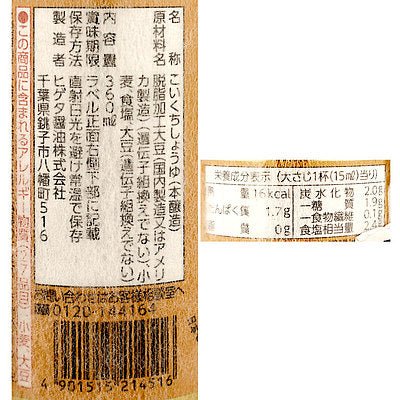 名称 こいくちしょうゆ(本醸造)
原材料名 脱脂加工大豆(国内製造又はアメリ
カ製造)(遺伝子組換えでない)、小
麦、食塩、大豆(遺伝子組換えでない)
内容量 360ml
賞味期限 ラベル正面右側下部に記載
保存方法 直射日光を避け常温で保存
製造者 ヒゲタ醤油株式会社
千葉県銚子市八幡町516
●この商品に含まれるアレルギー物質(27品目):小麦、大豆
お問い合わせはお客様相談室へ
0120-144164
4 901515 214516
栄養成分表示(大さじ1杯(15ml)当り)
熱量 16kcal
たんぱく質 1.7g
脂質 0g
炭水化物 2.0g
-糖質 1.9g
-食物繊維 0.1g
食塩相当量